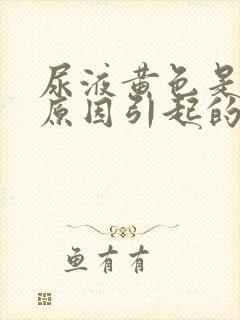 尿液黄色是
原因引起的
鱼有有